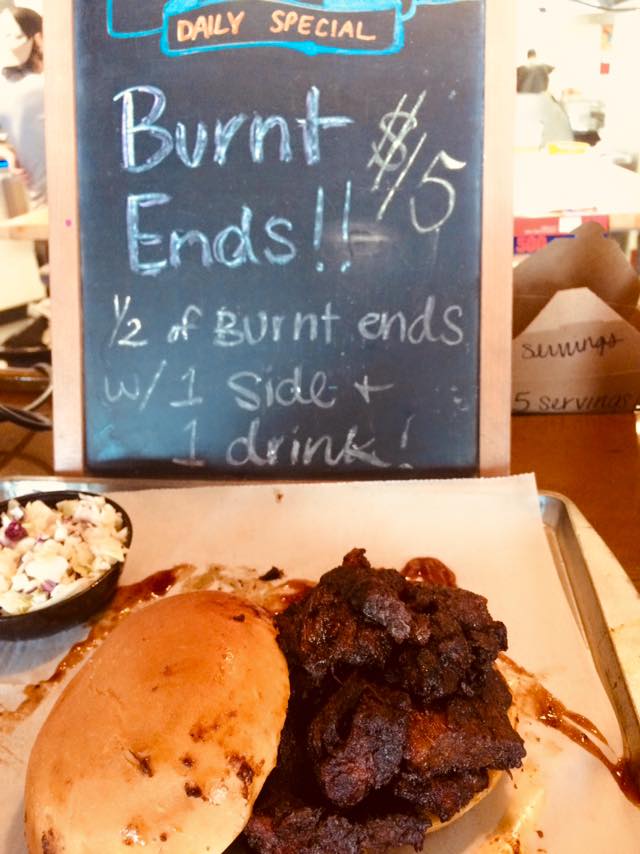 DAILY SPECIAL
Burnt $15
Ends!!
1/2 of Burnt ends
w/ 1 side +
1 drink!
servings
5 servings